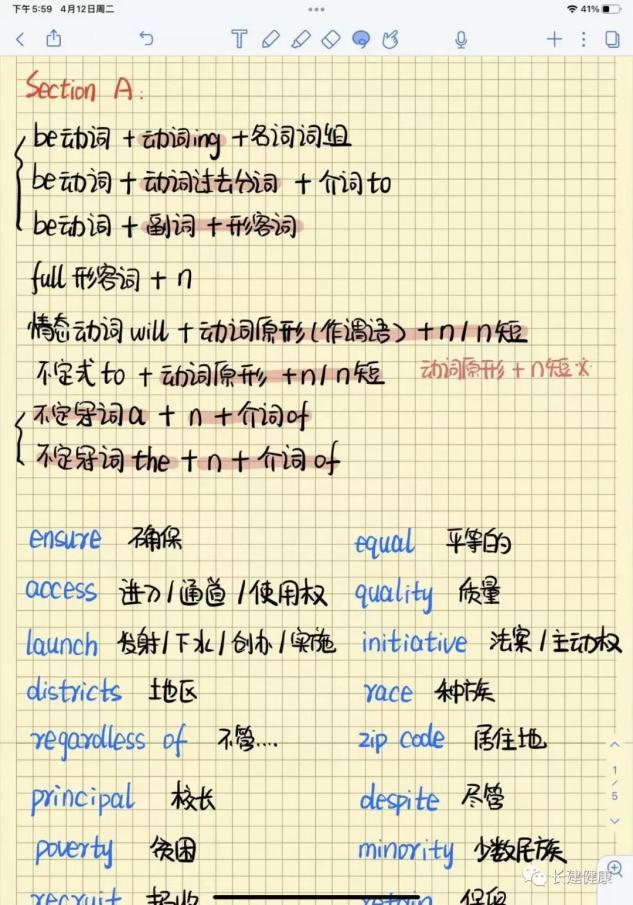 下午5:59 4月12日周二 41%
Section A:
be动词 + 动词ing + 名词词组
be动词 + 动词过去分词 + 介词to
be动词 + 副词 + 形容词
full 形容词 + n
情态动词 will + 动词原形(作谓语) + n / n短
不定式 to + 动词原形 + n / n短 动词原形 + n短
不定冠词 a + n + 介词of
不定冠词 the + n + 介词 of
ensure 确保 equal 平等的
access 进入 / 通道 / 使用权 quality 质量
launch 发射 / 下水 / 创办 / 实施 initiative 法案 / 主动权
districts 地区 race 种族
regardless of 不管... zip code 居住地
principal 校长 despite 尽管
poverty 贫困 minority 少数民族
recruit retain 保留
1/5
长建健康